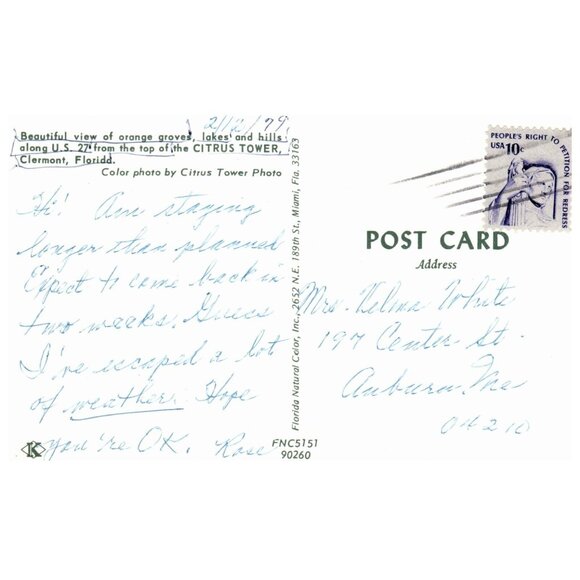 2/12/79
Beautiful view of orange groves, lakes and hills
along U.S. 27 from the top of the CITRUS TOWER,
Clermont, Florida.
Color photo by Citrus Tower Photo
Hi! Am staying
longer than planned
or
Expect to come back in
two weeks. Guess
I've escaped a lot
of weather. Hope
you're OK. Rose
K
Florida Natural Color, Inc., 2652 N.E. 189th St., Miami, Fla. 33163
FNC5151
90260
PEOPLE'S RIGHT TO PETITION FOR REDRESS
USA 10c
POST CARD
Address
Mrs. Velma White
197 Center St.
Auburn, Me
04210